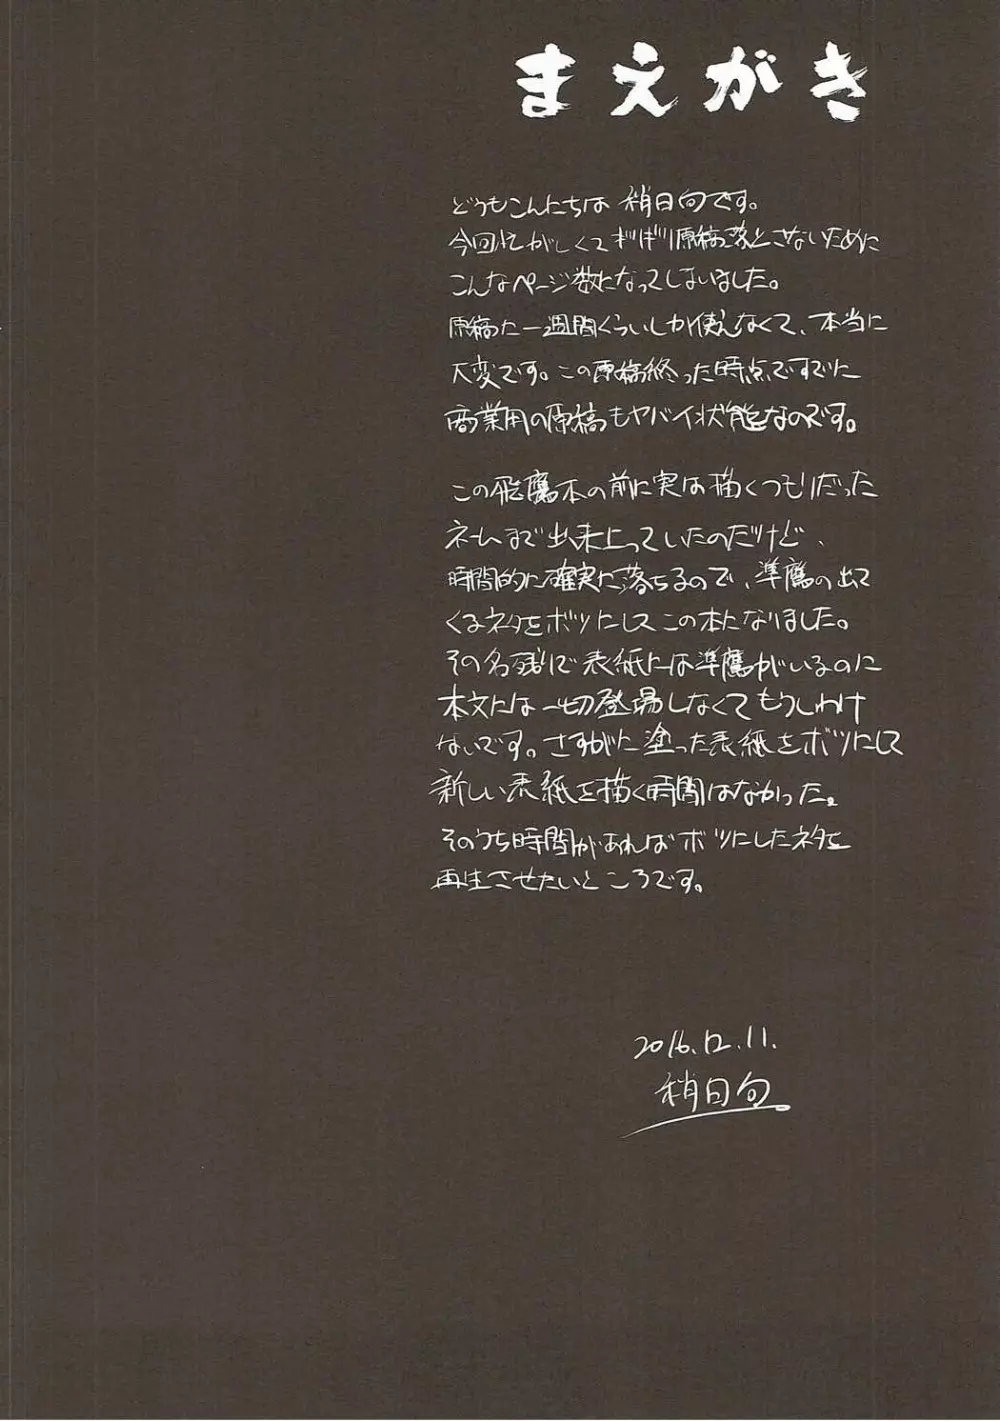 まえがき
どうもこんにちは 梢日向です。
今回忙がしくてギリギリ原稿落とさないために
こんなページ数になってしまいました。
原稿に一週間くらいしか使えなくて、本当に
大変です。この原稿終った時点ですでに
商業用の原稿もヤバイ状態なのです。
この飛鷹本の前に実は描くつもりだった
ネームまで出来上っていたのだけど、
時間的に確実に落ちるので、準鷹の出て
くるネタをボツにしてこの本になりました。
その名残りで表紙には準鷹がいるのに
本文には一切登場しなくてもうしわけ
ないです。さすがに塗った表紙をボツにして
新しい表紙を描く時間はなかった。
そのうち時間があればボツにしたネタを
再生させたいところです。
2016.12.11.
梢日向。